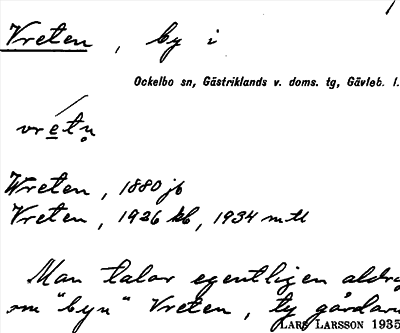 Vreten, by i
Ockelbo sn, Gästriklands v. doms. tg, Gävleb. l.
vretn̥
Wreten, 1880 jb
Vreten, 1926 kb, 1934 mtl
Man talar egentligen aldr
om "byn" Vreten, ty gårdarn
LARS LARSSON 1935